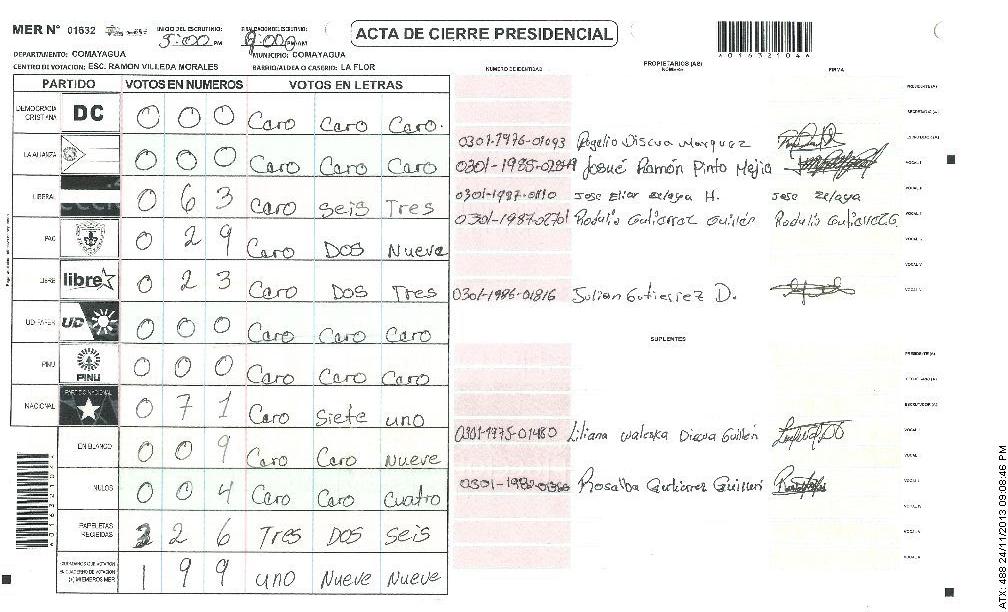 MER N° 01632 INICIO DEL ESCRUTINIO: 5:00 PM FINALIZACION DEL ESCRUTINIO: 8:00 PM/AM ACTA DE CIERRE PRESIDENCIAL
*01632104*
DEPARTAMENTO: COMAYAGUA MUNICIPIO: COMAYAGUA
CENTRO DE VOTACION: ESC. RAMON VILLEDA MORALES BARRIO/ALDEA O CASERIO: LA FLOR
PARTIDO VOTOS EN NUMEROS VOTOS EN LETRAS
DEMOCRACIA CRISTIANA DC 0 0 0 Caro Caro Caro.
LA ALIANZA 0 0 0 Caro Caro Caro
LIBERAL 0 6 3 Caro Seis Tres
PAC 0 2 9 Caro Dos Nueve
LIBRE libre 0 2 3 Caro Dos Tres
UD FAPER UD 0 0 0 Caro Caro Caro
PINU PINU 0 0 0 Caro Caro Caro
NACIONAL PARTIDO NACIONAL 0 7 1 Caro Siete uno
EN BLANCO 0 0 9 Caro Caro Nueve
NULOS 0 0 4 Caro Caro cuatro
PAPELETAS RECIBIDAS 3 2 6 Tres Dos seis
CIUDADANOS QUE VOTARON EN CUADERNO DE VOTACION (+) MIEMBROS MER 1 9 9 uno Nueve Nueve
NUMERO DE IDENTIDAD PROPIETARIOS (AS) NOMBRE FIRMA
PRESIDENTE (A)
SECRETARIO (A)
0301-1976-01093 Rogelio Discua Marquez ESCRUTADOR (A)
Josué Ramón Pinto Mejia VOCAL I
0301-1987-0110 Jose Elias Zelaya H. Jose Zelaya
0301-1987-02701 Rodulio Gutierrez Guillén Rodulio Gutierrez G.
0301-1986-01816 Julian Gutierrez D.
SUPLENTES
PRESIDENTE (A)
SECRETARIO (A)
ESCRUTADOR (A)
0301-1975-01480 Liliana Waleska Discua Guillén VOCAL
Rosalba Gutierrez Guillen VOCAL
ATX: 488 24/11/2013 09:08:46 PM